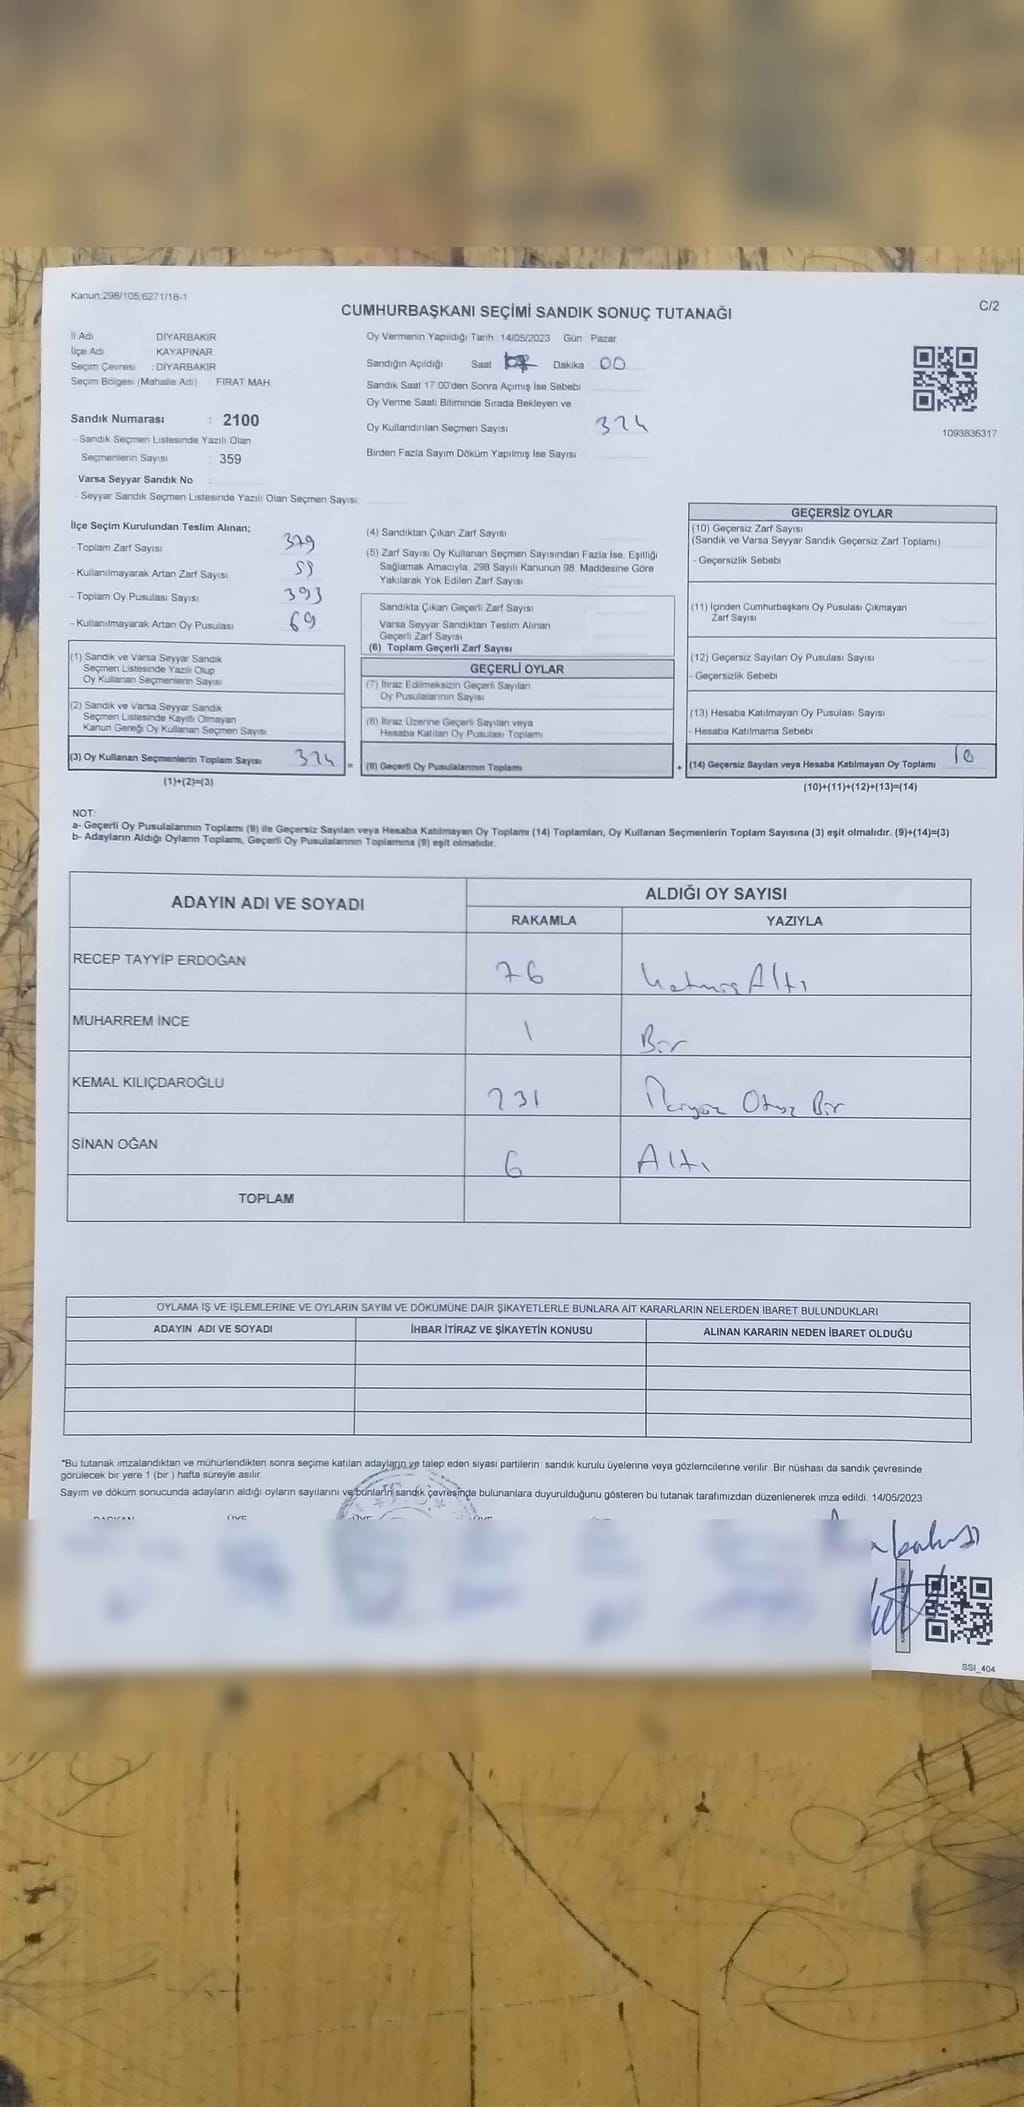 Kanun;298/105;6271/18-1
C/2
CUMHURBAŞKANI SEÇİMİ SANDIK SONUÇ TUTANAĞI
İl Adı DİYARBAKIR
İlçe Adı KAYAPINAR
Seçim Çevresi : DİYARBAKIR
Seçim Bölgesi (Mahalle Adı) FIRAT MAH.
Oy Vermenin Yapıldığı Tarih 14/05/2023 Gün Pazar
Sandığın Açıldığı Saat Dakika 00
Sandık Saat 17:00'den Sonra Açımış İse Sebebi
Oy Verme Saati Bitiminde Sırada Bekleyen ve
Oy Kullandırılan Seçmen Sayısı 324
Birden Fazla Sayım Döküm Yapılmış İse Sayısı
1093836317
Sandık Numarası : 2100
- Sandık Seçmen Listesinde Yazılı Olan
Seçmenlerin Sayısı 359
Varsa Seyyar Sandık No :
- Seyyar Sandık Seçmen Listesinde Yazılı Olan Seçmen Sayısı:
İlçe Seçim Kurulundan Teslim Alınan;
- Toplam Zarf Sayısı 379
- Kullanılmayarak Artan Zarf Sayısı
- Toplam Oy Pusulası Sayısı 393
- Kullanılmayarak Artan Oy Pusulası 69
(1) Sandık ve Varsa Seyyar Sandık
Seçmen Listesinde Yazılı Olup
Oy Kullanan Seçmenlerin Sayısı
(2) Sandık ve Varsa Seyyar Sandık
Seçmen Listesinde Kayıtlı Olmayan
Kanun Gereği Oy Kullanan Seçmen Sayısı
(3) Oy Kullanan Seçmenlerin Toplam Sayısı 324 =
(1)+(2)=(3)
(4) Sandıktan Çıkan Zarf Sayısı
(5) Zarf Sayısı Oy Kullanan Seçmen Sayısından Fazla İse, Eşitliği
Sağlamak Amacıyla, 298 Sayılı Kanunun 98. Maddesine Göre
Yakılarak Yok Edilen Zarf Sayısı
Sandıkta Çıkan Geçerli Zarf Sayısı
Varsa Seyyar Sandıktan Teslim Alınan
Geçerli Zarf Sayısı
(6) Toplam Geçerli Zarf Sayısı
GEÇERLİ OYLAR
(7) İtiraz Edilmeksizin Geçerli Sayılan
Oy Pusulalarının Sayısı
(8) İtiraz Üzerine Geçerli Sayılan veya
Hesaba Katılan Oy Pusulası Toplamı
(9) Geçerli Oy Pusulalarının Toplamı +
GEÇERSİZ OYLAR
(10) Geçersiz Zarf Sayısı
(Sandık ve Varsa Seyyar Sandık Geçersiz Zarf Toplamı)
- Geçersizlik Sebebi
(11) İçinden Cumhurbaşkanı Oy Pusulası Çıkmayan
Zarf Sayısı
(12) Geçersiz Sayılan Oy Pusulası Sayısı
- Geçersizlik Sebebi
(13) Hesaba Katılmayan Oy Pusulası Sayısı
- Hesaba Katılmama Sebebi
(14) Geçersiz Sayılan veya Hesaba Katılmayan Oy Toplamı 10
(10)+(11)+(12)+(13)=(14)
NOT:
a- Geçerli Oy Pusulalarının Toplamı (9) ile Geçersiz Sayılan veya Hesaba Katılmayan Oy Toplamı (14) Toplamları, Oy Kullanan Seçmenlerin Toplam Sayısına (3) eşit olmalıdır. (9)+(14)=(3)
b- Adayların Aldığı Oyların Toplamı, Geçerli Oy Pusulalarının Toplamına (9) eşit olmalıdır.
ADAYIN ADI VE SOYADI
ALDIĞI OY SAYISI
RAKAMLA YAZIYLA
RECEP TAYYİP ERDOĞAN 76 Altı
MUHARREM İNCE 1 Bir
KEMAL KILIÇDAROĞLU 231 Otuz Bir
SİNAN OĞAN 6 Altı
TOPLAM
OYLAMA İŞ VE İŞLEMLERİNE VE OYLARIN SAYIM VE DÖKÜMÜNE DAİR ŞİKAYETLERLE BUNLARA AİT KARARLARIN NELERDEN İBARET BULUNDUKLARI
ADAYIN ADI VE SOYADI İHBAR İTİRAZ VE ŞİKAYETİN KONUSU ALINAN KARARIN NEDEN İBARET OLDUĞU
*Bu tutanak imzalandıktan ve mühürlendikten sonra seçime katılan adayların ve talep eden siyasi partilerin sandık kurulu üyelerine veya gözlemcilerine verilir. Bir nüshası da sandık çevresinde
görülecek bir yere 1 (bir ) hafta süreyle asılır.
Sayım ve döküm sonucunda adayların aldığı oyların sayılarını ve bunların sandık çevresinde bulunanlara duyurulduğunu gösteren bu tutanak tarafımızdan düzenlenerek imza edildi. 14/05/2023
SSI_404